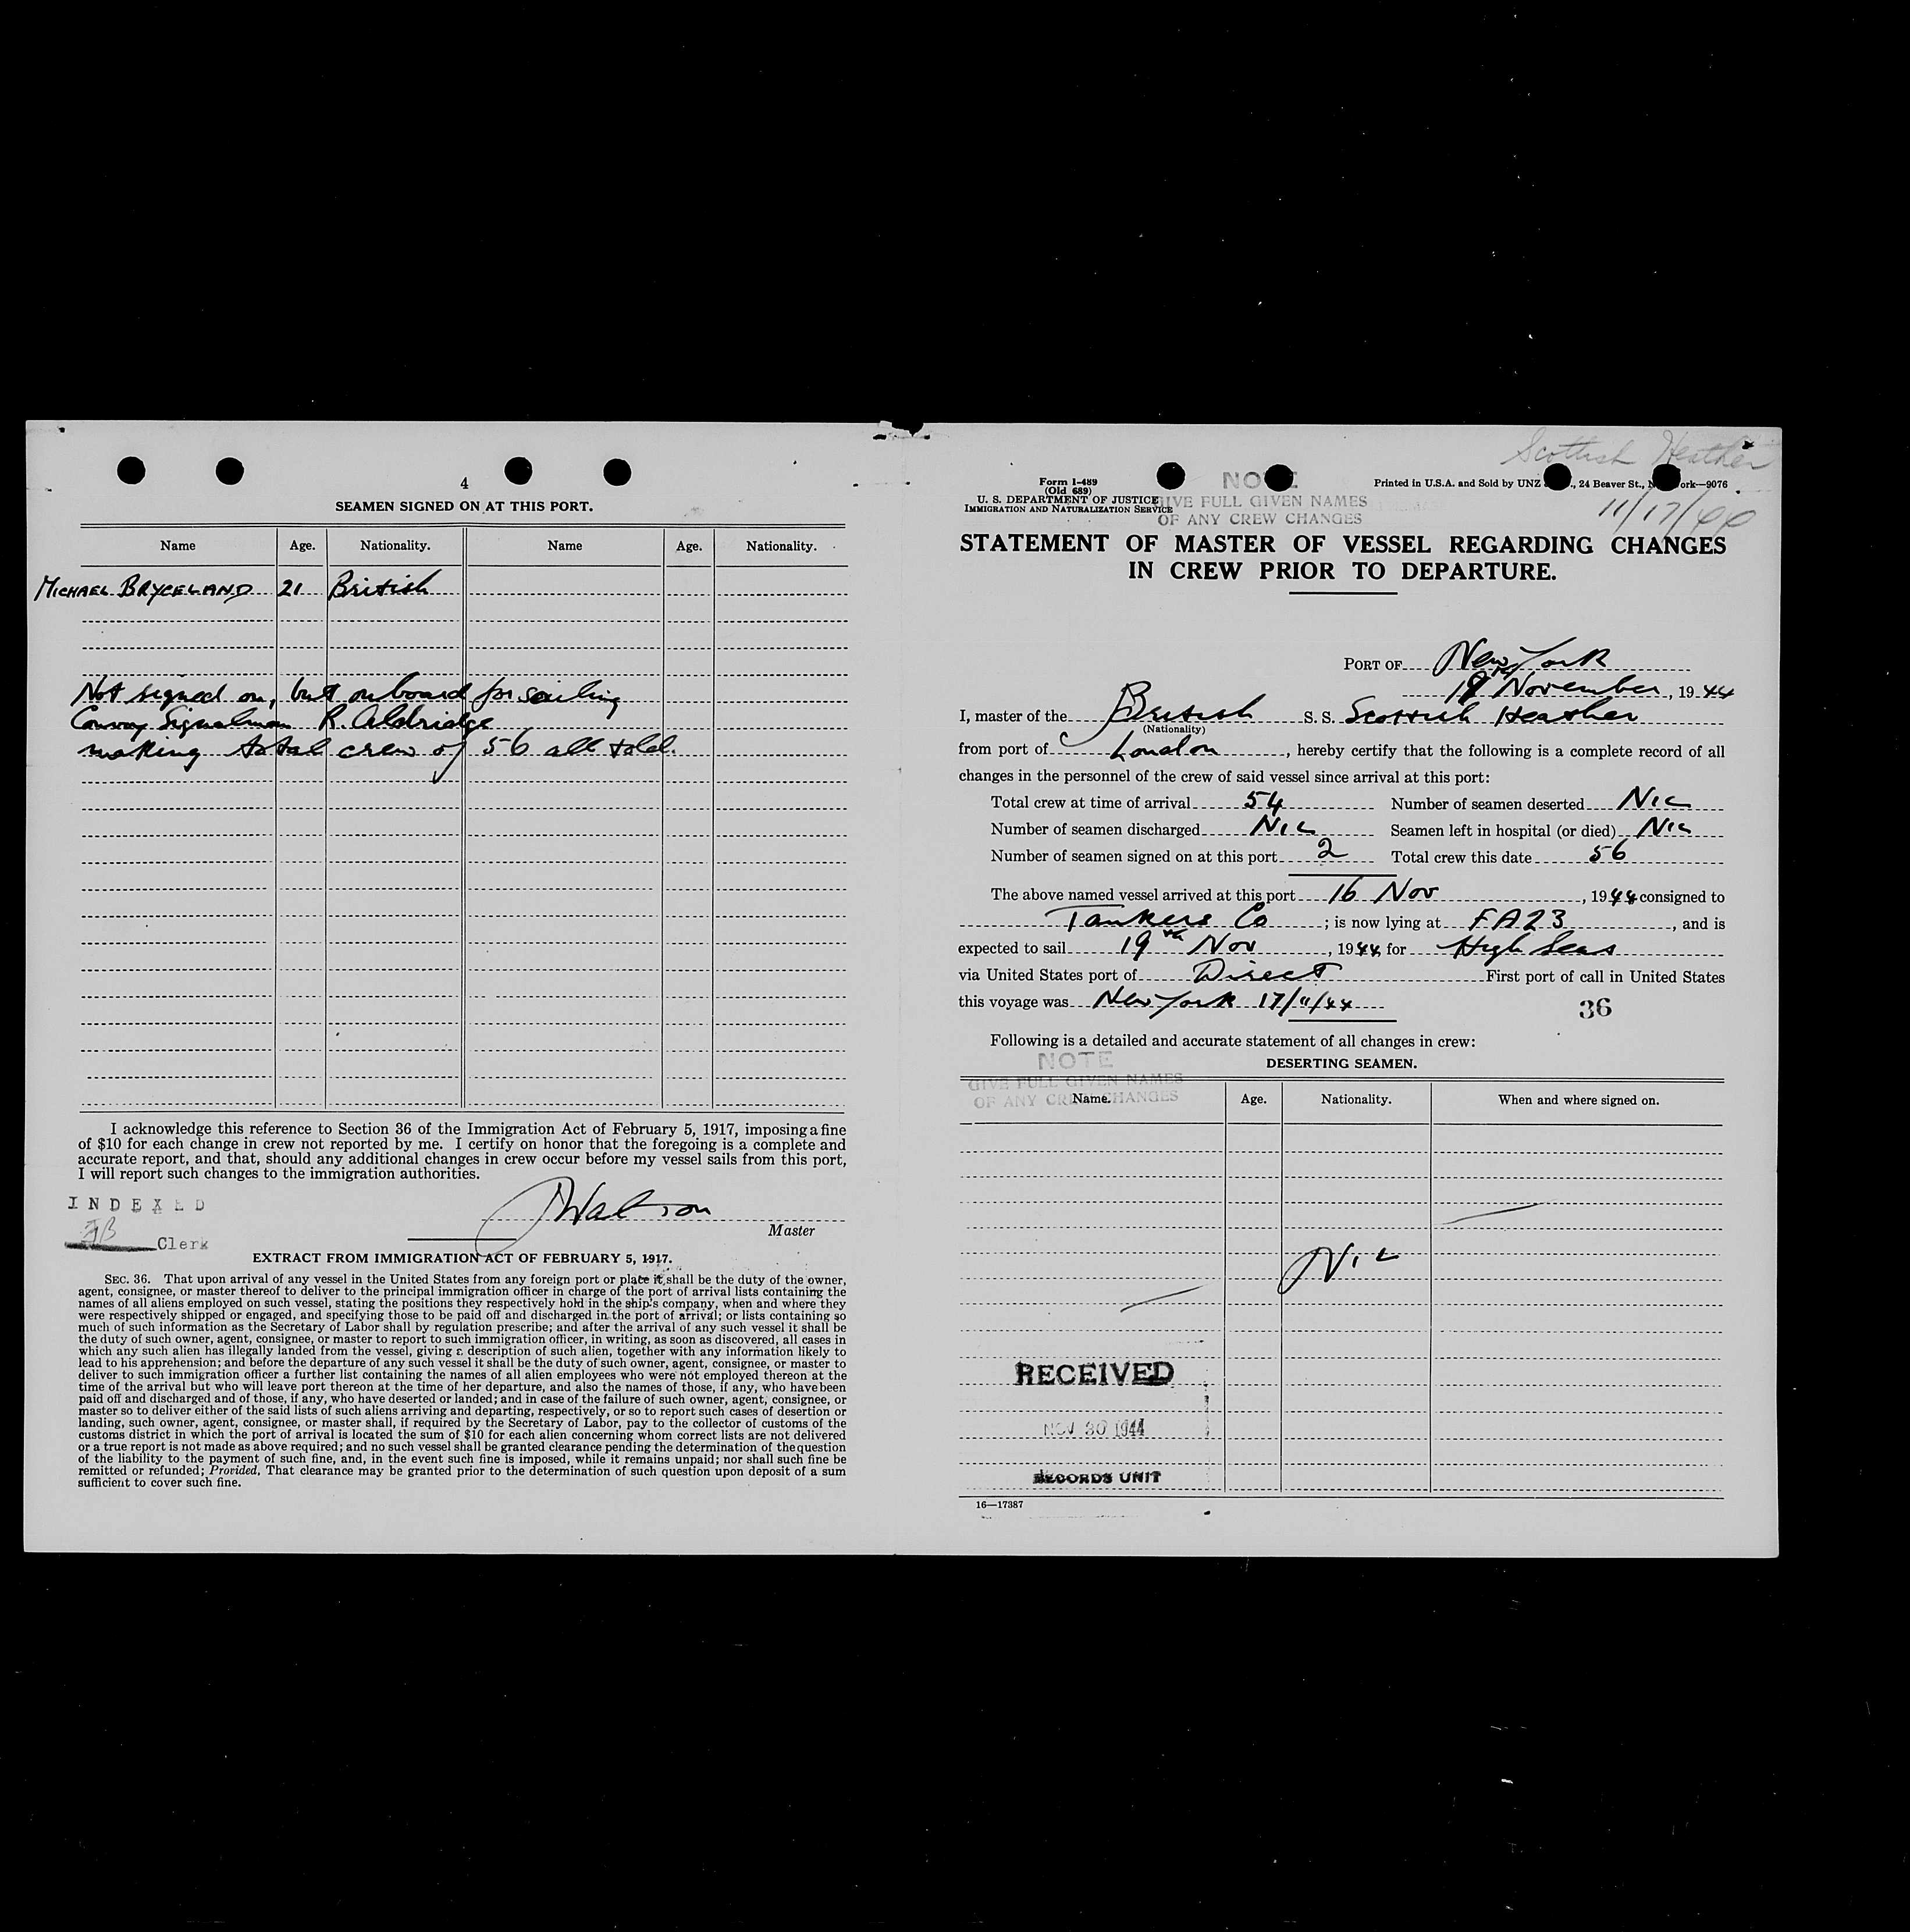 4
SEAMEN SIGNED ON AT THIS PORT.
Name Age. Nationality. Name Age. Nationality.
MICHAEL BRYCELAND 21 British
Not signed on, but onboard for sailing
Convoy Signalman R. Aldridge
making total crew of 56 all told.
I acknowledge this reference to Section 36 of the Immigration Act of February 5, 1917, imposing a fine
of $10 for each change in crew not reported by me. I certify on honor that the foregoing is a complete and
accurate report, and that, should any additional changes in crew occur before my vessel sails from this port,
I will report such changes to the immigration authorities.
INDEXED
JB Clerk
Watson
Master
EXTRACT FROM IMMIGRATION ACT OF FEBRUARY 5, 1917.
SEC. 36. That upon arrival of any vessel in the United States from any foreign port or place it shall be the duty of the owner,
agent, consignee, or master thereof to deliver to the principal immigration officer in charge of the port of arrival lists containing the
names of all aliens employed on such vessel, stating the positions they respectively hold in the ship's company, when and where they
were respectively shipped or engaged, and specifying those to be paid off and discharged in the port of arrival; or lists containing so
much of such information as the Secretary of Labor shall by regulation prescribe; and after the arrival of any such vessel it shall be
the duty of such owner, agent, consignee, or master to report to such immigration officer, in writing, as soon as discovered, all cases in
which any such alien has illegally landed from the vessel, giving a description of such alien, together with any information likely to
lead to his apprehension; and before the departure of any such vessel it shall be the duty of such owner, agent, consignee, or master to
deliver to such immigration officer a further list containing the names of all alien employees who were not employed thereon at the
time of the arrival but who will leave port thereon at the time of her departure, and also the names of those, if any, who have been
paid off and discharged and of those, if any, who have deserted or landed; and in case of the failure of such owner, agent, consignee, or
master so to deliver either of the said lists of such aliens arriving and departing, respectively, or so to report such cases of desertion or
landing, such owner, agent, consignee, or master shall, if required by the Secretary of Labor, pay to the collector of customs of the
customs district in which the port of arrival is located the sum of $10 for each alien concerning whom correct lists are not delivered
or a true report is not made as above required; and no such vessel shall be granted clearance pending the determination of the question
of the liability to the payment of such fine, and, in the event such fine is imposed, while it remains unpaid; nor shall such fine be
remitted or refunded; Provided, That clearance may be granted prior to the determination of such question upon deposit of a sum
sufficient to cover such fine.
Scottish Heather
11/17/44
Form I-489
(Old 689)
U. S. DEPARTMENT OF JUSTICE
IMMIGRATION AND NATURALIZATION SERVICE
NOTE
GIVE FULL GIVEN NAMES
OF ANY CREW CHANGES
Printed in U.S.A. and Sold by UNZ , 24 Beaver St., New York—9076
STATEMENT OF MASTER OF VESSEL REGARDING CHANGES
IN CREW PRIOR TO DEPARTURE.
PORT OF New York
November, 1944
I, master of the British S. S. Scottish Heather
(Nationality)
from port of London, hereby certify that the following is a complete record of all
changes in the personnel of the crew of said vessel since arrival at this port:
Total crew at time of arrival 54 Number of seamen deserted NIL
Number of seamen discharged NIL Seamen left in hospital (or died) NIL
Number of seamen signed on at this port 2 Total crew this date 56
The above named vessel arrived at this port 16 Nov, 1944 consigned to
Tankers Co; is now lying at FA23, and is
expected to sail 19th Nov, 1944 for High Seas
via United States port of Direct First port of call in United States
this voyage was New York 17/11/44
36
Following is a detailed and accurate statement of all changes in crew:
NOTE
GIVE FULL GIVEN NAMES
OF ANY CREW CHANGES
DESERTING SEAMEN.
Name. Age. Nationality. When and where signed on.
NIL
RECEIVED
NOV 30 1944
RECORDS UNIT
16—17387